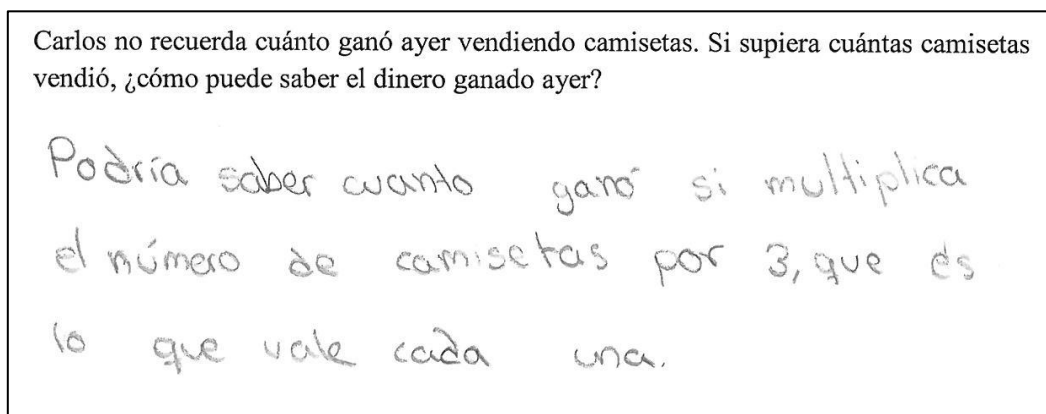 Carlos no recuerda cuánto ganó ayer vendiendo camisetas. Si supiera cuántas camisetas
vendió, ¿cómo puede saber el dinero ganado ayer?
Podría saber cuanto ganó si multiplica
el número de camisetas por 3, que es
lo que vale cada una.